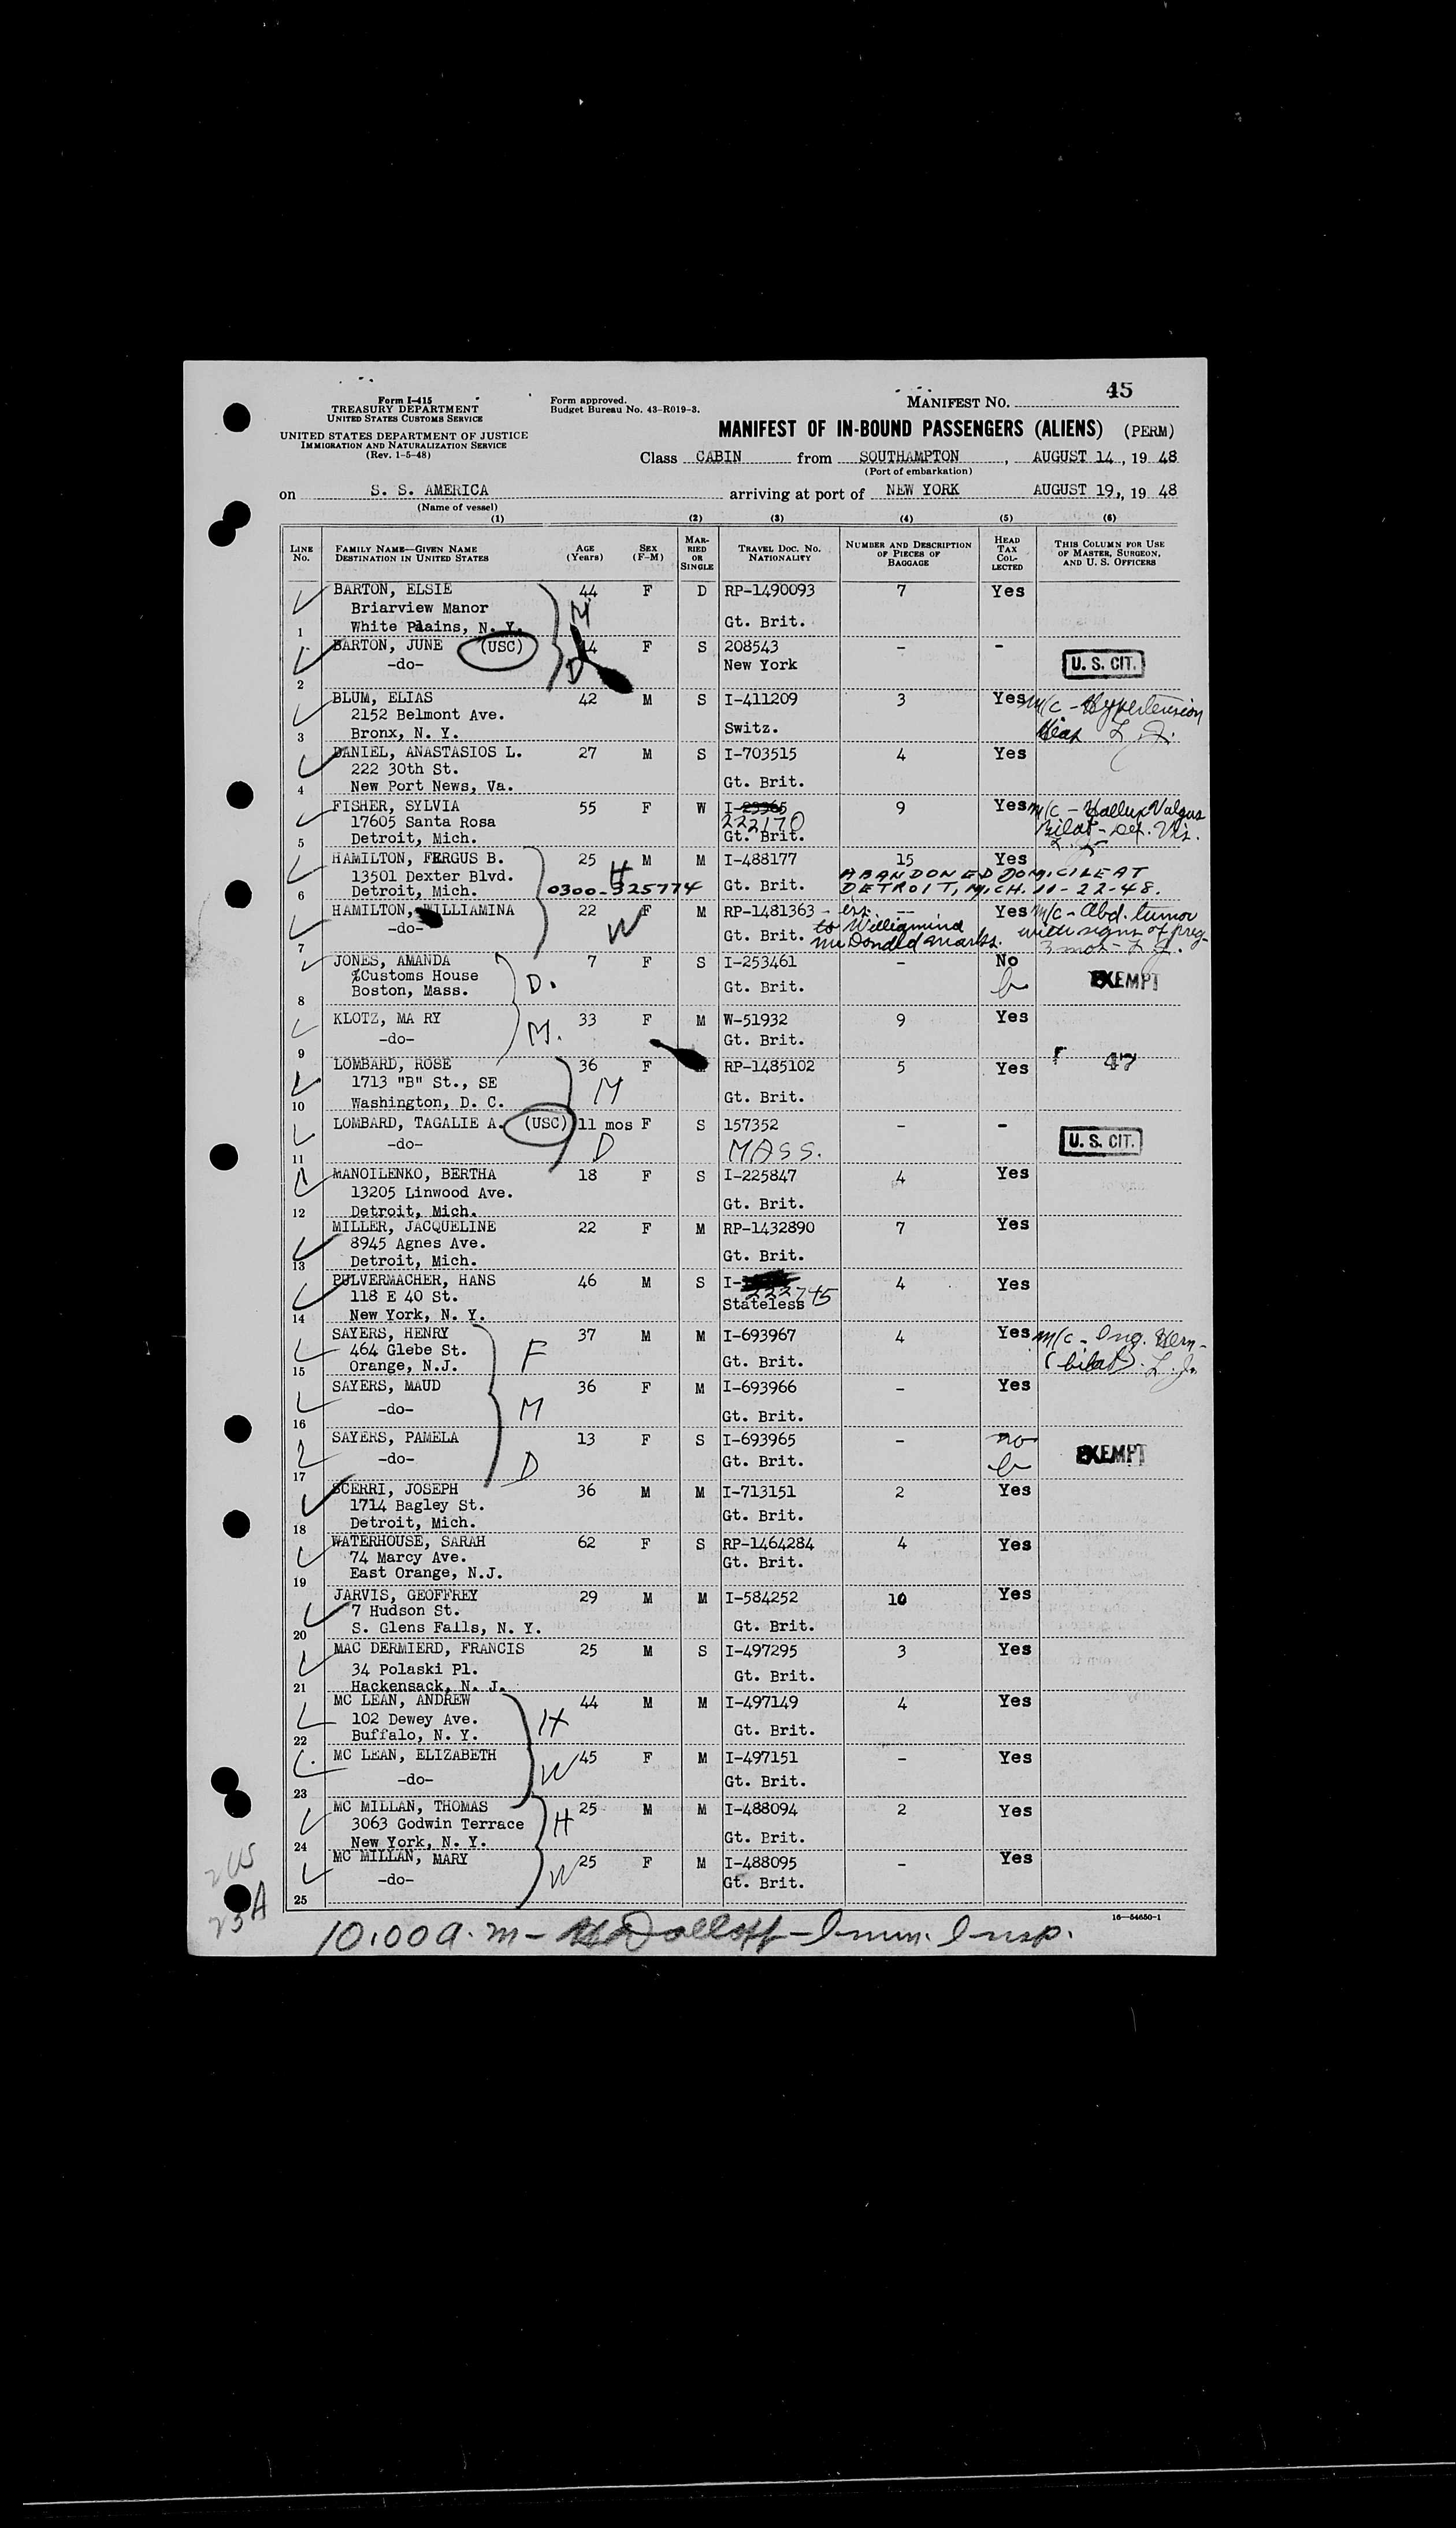 Form I-415
TREASURY DEPARTMENT
UNITED STATES CUSTOMS SERVICE
UNITED STATES DEPARTMENT OF JUSTICE
IMMIGRATION AND NATURALIZATION SERVICE
(Rev. 1-5-48)
Form approved.
Budget Bureau No. 43-R019-3.
MANIFEST NO. 45
MANIFEST OF IN-BOUND PASSENGERS (ALIENS) (PERM)
Class CABIN from SOUTHAMPTON, AUGUST 14, 19 48
(Port of embarkation)
on S. S. AMERICA arriving at port of NEW YORK AUGUST 19, 19 48
(Name of vessel)
(1) (2) (3) (4) (5) (6)
LINE No. FAMILY NAME—GIVEN NAME DESTINATION IN UNITED STATES AGE (Years) SEX (F-M) MARRIED OR SINGLE TRAVEL DOC. NO. NATIONALITY NUMBER AND DESCRIPTION OF PIECES OF BAGGAGE HEAD TAX COLLECTED THIS COLUMN FOR USE OF MASTER, SURGEON, AND U. S. OFFICERS
BARTON, ELSIE 44 F D RP-1490093 7 Yes
Briarview Manor M
1 White Plains, N. Y. Gt. Brit.
BARTON, JUNE (USC) 14 F S 208543 - -
-do- D New York U. S. CIT.
2
BLUM, ELIAS 42 M S I-411209 3 Yes m/c - Hypertension
2152 Belmont Ave.
3 Bronx, N. Y. Switz. L. J.
DANIEL, ANASTASIOS L. 27 M S I-703515 4 Yes
222 30th St.
4 New Port News, Va. Gt. Brit.
FISHER, SYLVIA 55 F W I- 9 Yes m/c - Hallux Valgus
17605 Santa Rosa 222170 Bilat - Def. Vis.
5 Detroit, Mich. Gt. Brit. L. J.
HAMILTON, FERGUS B. 25 H M M I-488177 15 Yes
13501 Dexter Blvd. ABANDONED DOMICILE AT
6 Detroit, Mich. 0300-325774 Gt. Brit. DETROIT, MICH. 11-22-48.
HAMILTON, WILLIAMINA 22 W F M RP-1481363 - -- Yes m/c - Abd. tumor
-do- Gt. Brit. to Williamina with signs of preg-
7 3 mos - L. J.
JONES, AMANDA 7 F S I-253461 - No
%Customs House D. EXEMPT
8 Boston, Mass. Gt. Brit.
KLOTZ, MA RY 33 F M W-51932 9 Yes
-do- M. Gt. Brit.
9
LOMBARD, ROSE 36 F RP-1485102 5 Yes 47
1713 "B" St., SE M
10 Washington, D. C. Gt. Brit.
LOMBARD, TAGALIE A. (USC) 11 mos F S 157352 - -
-do- D MASS. U. S. CIT.
11
MANOILENKO, BERTHA 18 F S I-225847 4 Yes
13205 Linwood Ave.
12 Detroit, Mich. Gt. Brit.
MILLER, JACQUELINE 22 F M RP-1432890 7 Yes
8945 Agnes Ave.
13 Detroit, Mich. Gt. Brit.
PULVERMACHER, HANS 46 M S I- 4 Yes
118 E 40 St. 222745
14 New York, N. Y. Stateless
SAYERS, HENRY 37 M M I-693967 4 Yes m/c - Ing. Hern-
464 Glebe St. F (bilat). L. J.
15 Orange, N.J. Gt. Brit.
SAYERS, MAUD 36 F M I-693966 - Yes
-do- M
16 Gt. Brit.
SAYERS, PAMELA 13 F S I-693965 - no
-do- D Gt. Brit. EXEMPT
17
SCERRI, JOSEPH 36 M M I-713151 2 Yes
1714 Bagley St.
18 Detroit, Mich. Gt. Brit.
WATERHOUSE, SARAH 62 F S RP-1464284 4 Yes
74 Marcy Ave. Gt. Brit.
19 East Orange, N.J.
JARVIS, GEOFFREY 29 M M I-584252 10 Yes
7 Hudson St.
20 S. Glens Falls, N. Y. Gt. Brit.
MAC DERMIERD, FRANCIS 25 M S I-497295 3 Yes
34 Polaski Pl.
21 Hackensack, N. J. Gt. Brit.
MC LEAN, ANDREW 44 M M I-497149 4 Yes
102 Dewey Ave. H
22 Buffalo, N. Y. Gt. Brit.
MC LEAN, ELIZABETH W 45 F M I-497151 - Yes
-do- Gt. Brit.
23
MC MILLAN, THOMAS 25 M M I-488094 2 Yes
3063 Godwin Terrace H
24 New York, N. Y. Gt. Brit.
MC MILLAN, MARY W 25 F M I-488095 - Yes
-do- Gt. Brit.
25
2 US
23A
16—54650-1
10.00 a.m - Imm. Insp.